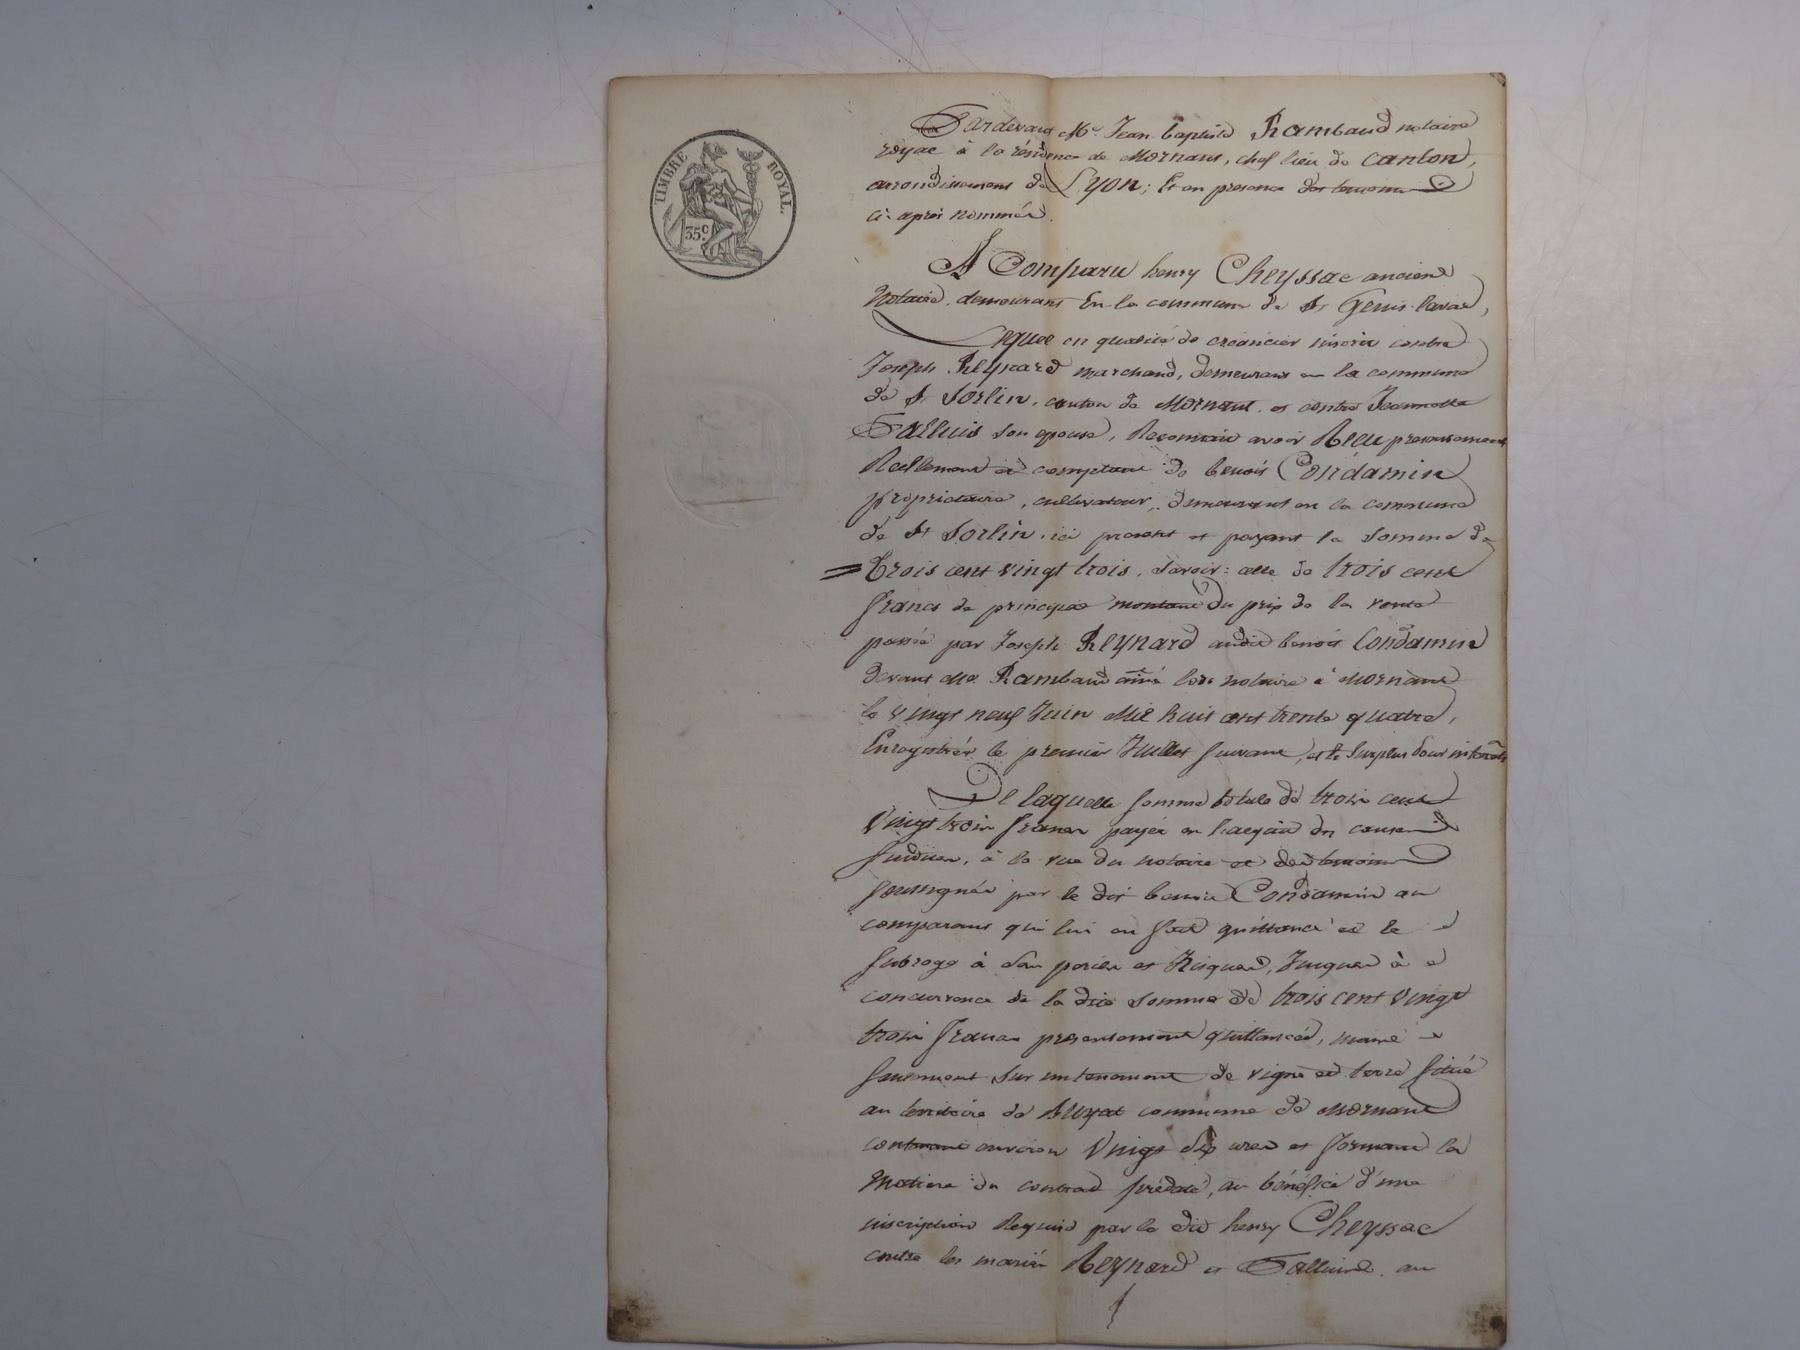 TIMBRE ROYAL.
35c.
Pardevant Me. Jean baptiste Rambaud notaire
royal à la résidence de Mornant, chef lieu de canton,
arrondissement de Lyon; Et en presence des temoins
ci-après nommés.
A Comparu henry Cheyssac ancien
Notaire, demeurant En la commune de St Genis-laval,
Lequel en qualité de créancier inscrit contre
Joseph Reynard marchand, demeurant en la commune
de St Sorlin, canton de Mornant, et contre Jeannette
son epouse, Reconnait avoir Reçu presentement
Reellement et comptant de benoit Condamin
propriétaire, cultivateur, demeurant en la commune
de St Sorlin, ici present et payant la somme de
trois cent vingt trois, savoir: celle de trois cent
francs de principal montant du prix de la vente
passée par Joseph Reynard audit benoit Condamin
devant Me. Rambaud ainé lors notaire à Mornant
le vingt neuf Juin Mil huit cent trente quatre,
Enregistrée le premier Juillet suivant, et le surplus pour intérêts
De laquelle somme totale de trois cent
Vingt trois francs payée en l'acquit des causes
susdites, à la vue du notaire et des temoins
soussignés par le dit benoit Condamin au
comparant qui lui en fait quittance et le
subroge à ses perils et Risques, Jusques à
concurrence de la dite somme de trois cent vingt
trois francs presentement quittancés, mais
seulement sur un tenement de vigne et terre situé
au territoire de commune de Mornant
contenant environ Vingt dix ares et formant la
Matiere du contrat prédaté, au bénéfice d'une
inscription Requise par le dit henry Cheyssac
contre les mariés Reynard et au